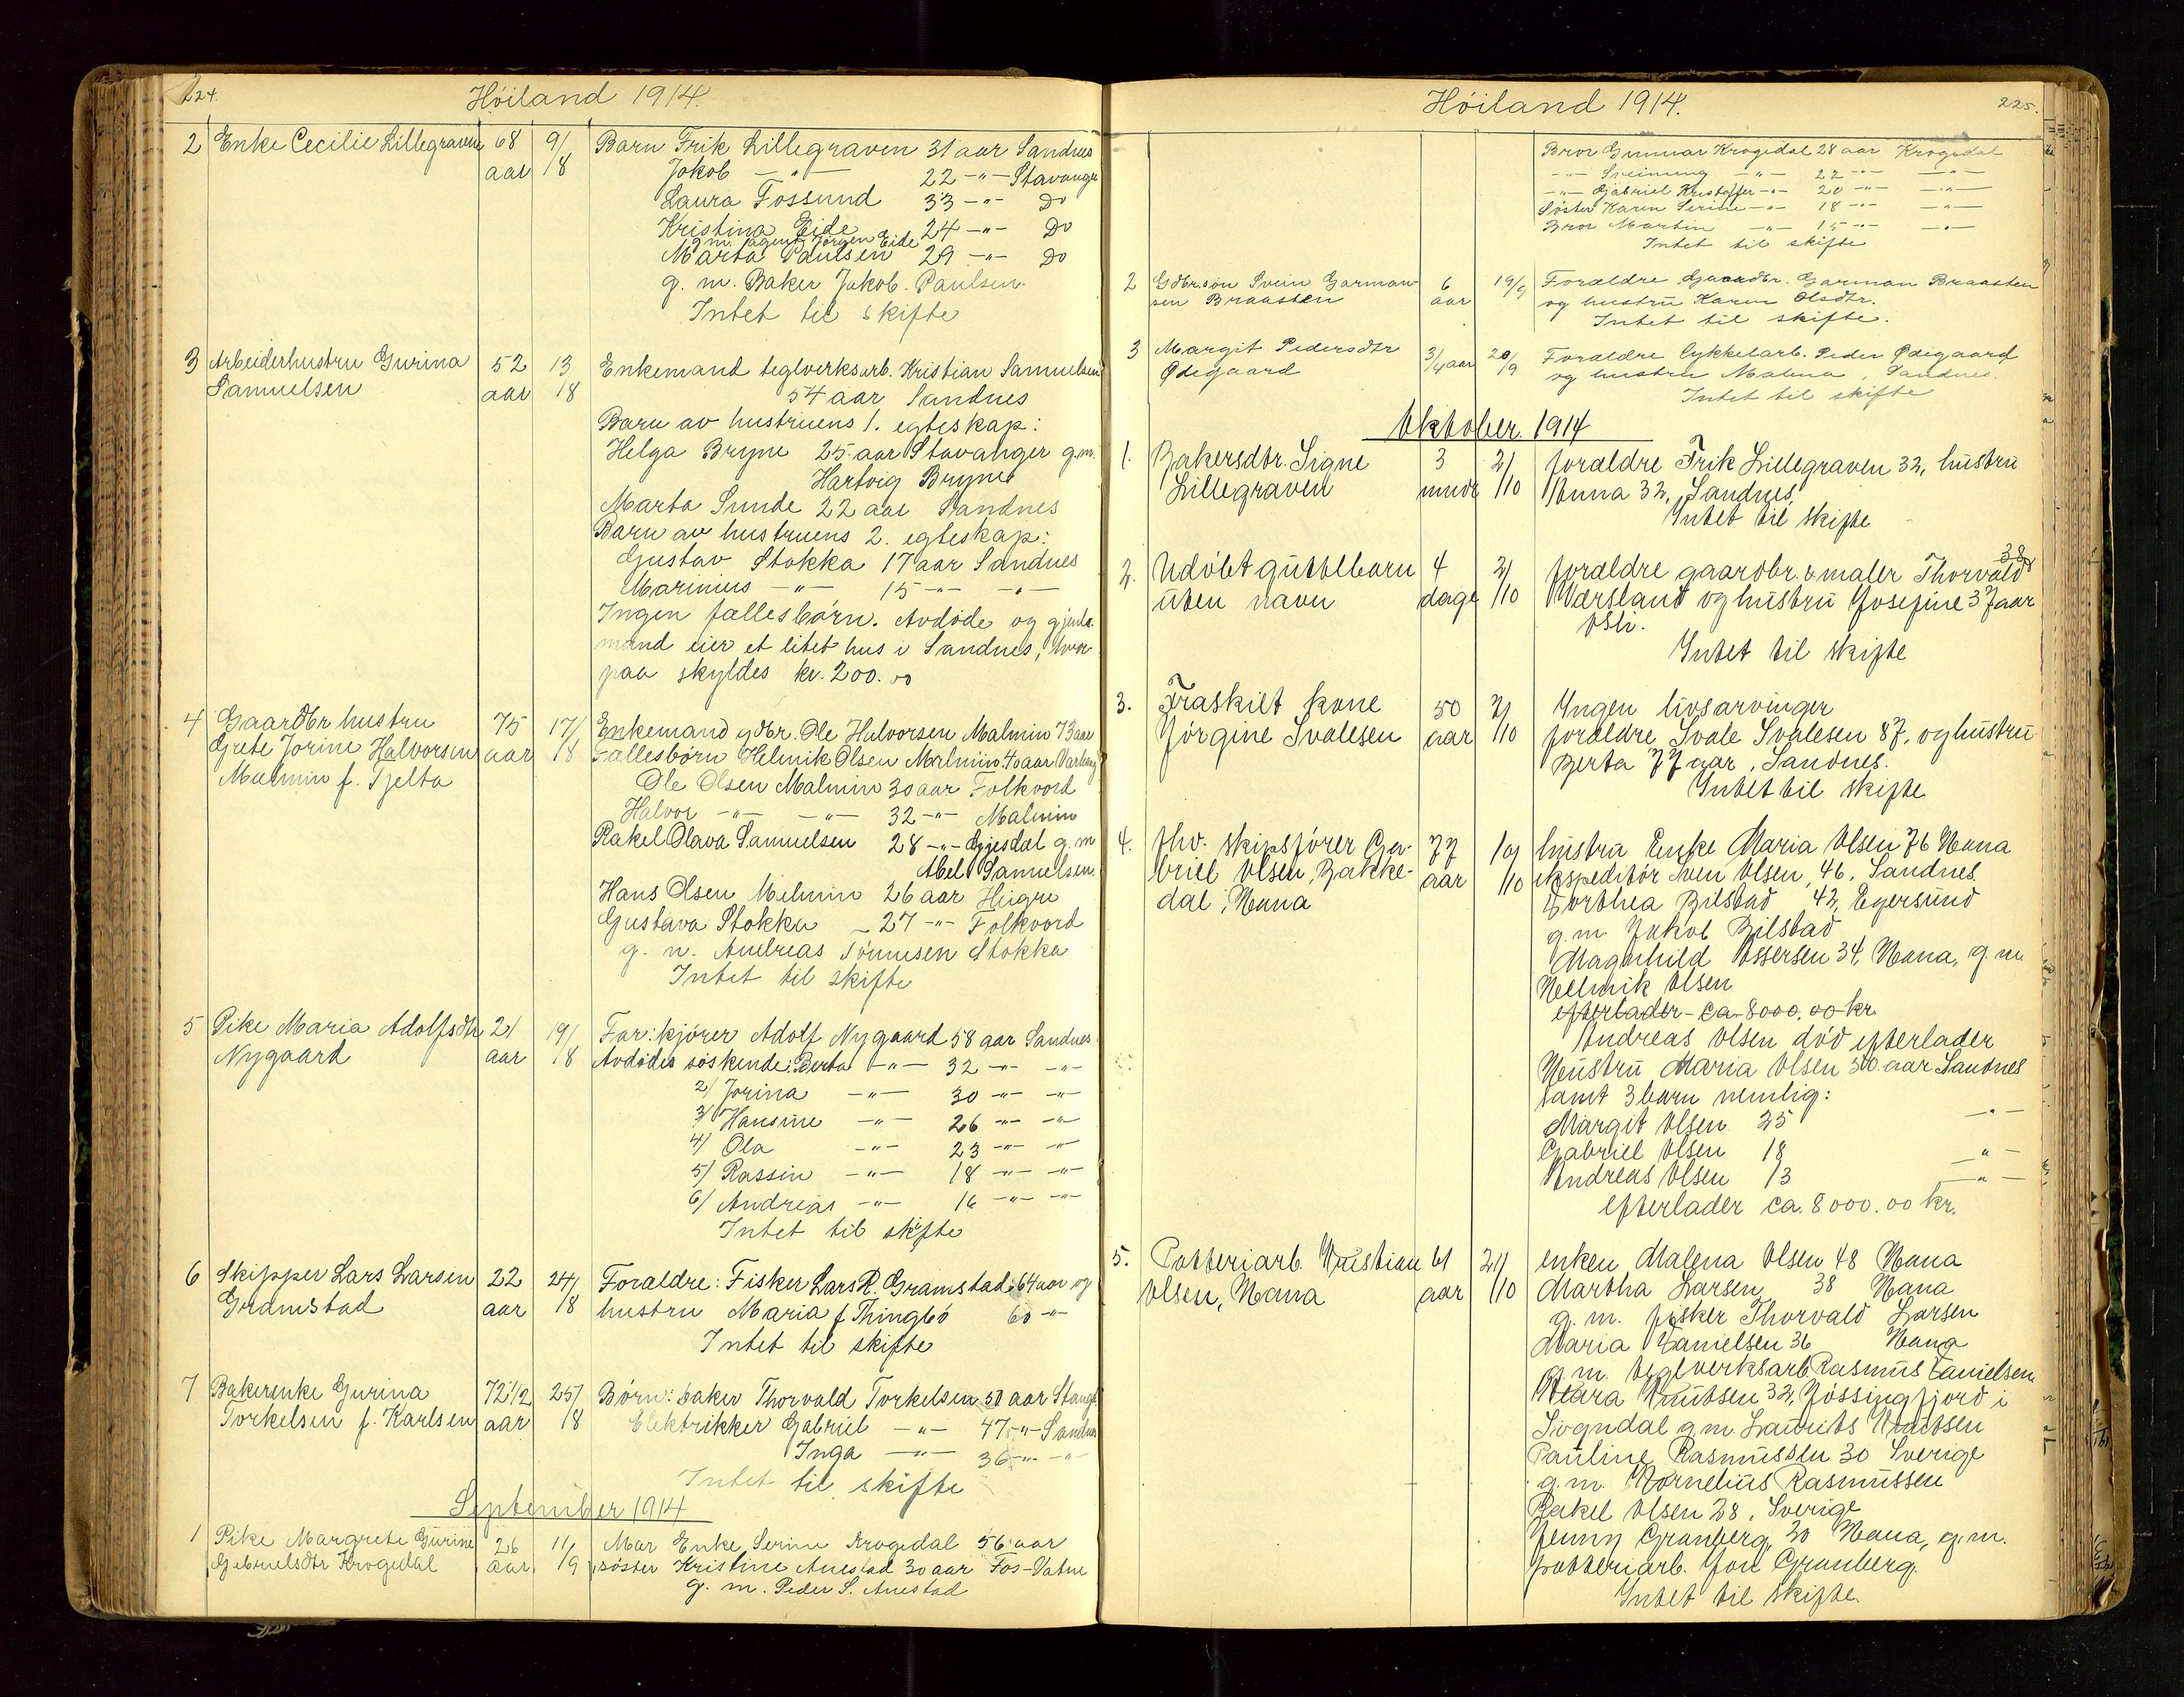 224.
Höiland 1914.
2 Enke Cecilie Lillegraven 68 aar 9/8 Barn Frik Lillegraven 31 aar Sandnes
Jakob —"— 22 —"— Stavanger
Laura Fossund 33 —"— Do
Kristina Eide 24 —"— Do
g.m. agent Jörgen Eide
Marta Paulsen 29 —"— Do
g. m. Baker Jakob. Paulsen.
Intet til skifte
3 Arbeiderhustru Gurina 52 13 Enkemand teglverksarb. Kristian Samuelsen
Samuelsen aar 18 54 aar Sandnes
Barn av hustruens 1. egteskap:
Helga Bryne 25 aar Stavanger g.m.
Hartvig Bryne
Marta Sunde 22 aar Sandnes
Barn av hustruens 2. egteskap:
Gustav Stokka 17 aar Sandnes
Marinius —"— 15 —"— —"—
Ingen fællesbörn. Avdöde og gjenl.
mand eier et litet hus i Sandnes, hvor
paa skyldes kr. 200.00
4 Gaardbr hustru 75 17/ Enkemand gdbr. Ole Halvorsen Malmin 73 aar
Grete Jorine Halvorsen aar 18 Fællesbörn Helmik Olsen Malmin 40 aar
Malmin f. Tjelta
Ole Olsen Malmin 30 aar Folkvord
Halvor —"— —"— 32 —"— Malmin
Rakel Olava Samuelsen 28 —"— Gjesdal g.m
Abel Samuelsen.
Hans Olsen Malmin 26 aar Höigre
Gustava Stokka 27 —"— Folkvord
g. m. Andreas Tönnesen Stokka
Intet til skifte
5 Pike Maria Adolfsdtr 21 19/ Far: kjörer Adolf Nygaard 58 aar Sandnes
Nygaard aar 18 Avdödes söskende: Berta —"— 32 —"— —"—
2/ Jorina —"— 30 —"— —"—
3/ Hansine —"— 26 —"— —"—
4/ Ola —"— 23 —"— —"—
5/ Rassin —"— 18 —"— —"—
6/ Andreas —"— 16 —"— —"—
Intet til skifte
6 Skipper Lars Larsen 22 24/ Foraldre: Fisker Lars R. Gramstad 64 aar og
Gramstad aar 18 hustru Maria f Thingbö 60 —"—
Intet til skifte
7 Bakerenke Gurina 72 1/2 25/ Börn: baker Thorvald Torkelsen 50 aar Stavgr.
Torkelsen f. Karlsen aar 18 Elektrikker Gabriel —"— 47 —"— Sandnes
Inga —"— 36 —"— —"—
Intet til skifte
September 1914
1 Pike Margrete Gurine 26 11/ Mor Enke Serine Krogedal 56 aar
Gabrielsdtr Krogedal aar 19 söster Kristine Anestad 30 aar Fos-Vatne
g. m. Peder S. Anestad
Höiland 1914.
225.
Bror Gunnar Krogedal 28 aar Krogedal
—"— Sveinung —"— 22 —"— —"—
—"— Gabriel Kristoffer —"— 20 —"— —"—
Söster Karen Serine —"— 18 —"— —"—
Bror Martin —"— 15 —"— —"—
Intet til skifte
2 Gdbr.sön Svein Garman- 6 19/9 Forældre Gaardbr. Garman Braasten
sen Braasten aar og hustru Karen Olsdtr.
Intet til skifte.
3 Margit Pedersdtr 3/4 aar 20/9 Forældre Cykkelarb. Peder Ödegaard
Ödegaard og hustru Malena, Sandnes.
Intet til skifte
Oktober 1914
1. Bakersdtr. Signe 3 2/ forældre Frik Lillegraven 32, hustru
Lillegraven mndr 10 Anna 32, Sandnes,
Intet til skifte
2. Udöbt guttebarn 4 2/ forældre gaardbr. & maler Thorvald 38
uten navn dage 10 Værsland og hustru Josefine 37 aar
Osli.
Intet til skifte
3. Fraskilt kone 50 2/ Ingen livsarvinger
Jörgine Svalesen aar 10 foraldre Svale Svalesen 87, og hustru
Berta 77 aar, Sandnes.
Intet til skifte
4. fhv. skipsförer Ga- 77 19 hustru Enke Maria Olsen 76 Hana
briel Olsen, Bakke- aar 10 ekspeditör Sven Olsen, 46, Sandnes
dal, Hana
Dorthea Bilstad 42, Egersund
g.m. Jakob Bilstad
Magnhild Assersen 34, Hana, g.m.
Helmik Olsen
efterlader - ca. 8000.00 kr.
Andreas Olsen död efterlader
Hustru Maria Olsen 50 aar Sandnes
samt 3 barn nemlig:
Margit Olsen 25 —"—
Gabriel Olsen 18 —"—
Andreas Olsen 13 —"—
efterlader ca. 8000.00 kr.
5. Potteriarb. Kristian 61 21/ enken Malena Olsen 48 Hana
Olsen, Hana aar 10 Martha Larsen 38 Hana
g.m. fisker Thorvald Larsen
Maria Danielsen 36 Hana
g.m. teglverksarb. Rasmus Danielsen
Klara Knutsen 32, Jössingfjord i
Sogndal g.m. Laurits Knutsen
Pauline Rasmussen 30 Sverige
g.m. Kornelius Rasmussen
Rakel Olsen 28, Sverige
Jenny Granberg, 20 Hana, g.m.
potteriarb. Jon Granberg.
Intet til skifte.